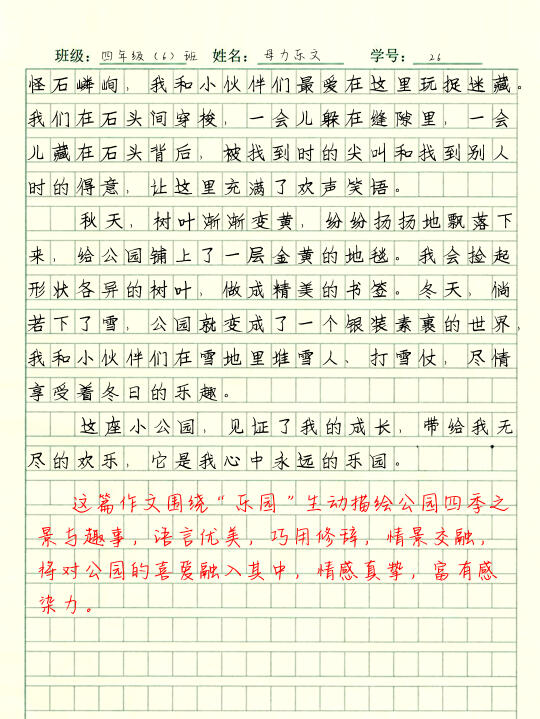 班级：四年级（6）班 姓名：母力乐文 学号：26
怪石嶙峋，我和小伙伴们最爱在这里玩捉迷藏。
我们在石头间穿梭，一会儿躲在缝隙里，一会
儿藏在石头背后，被找到时的尖叫和找到别人
时的得意，让这里充满了欢声笑语。
秋天，树叶渐渐变黄，纷纷扬扬地飘落下
来，给公园铺上了一层金黄的地毯。我会捡起
形状各异的树叶，做成精美的书签。冬天，倘
若下了雪，公园就变成了一个银装素裹的世界，
我和小伙伴们在雪地里堆雪人、打雪仗，尽情
享受着冬日的乐趣。
这座小公园，见证了我的成长，带给我无
尽的欢乐，它是我心中永远的乐园。
这篇作文围绕“乐园”生动描绘公园四季之
景与趣事，语言优美，巧用修辞，情景交融，
将对公园的喜爱融入其中，情感真挚，富有感
染力。